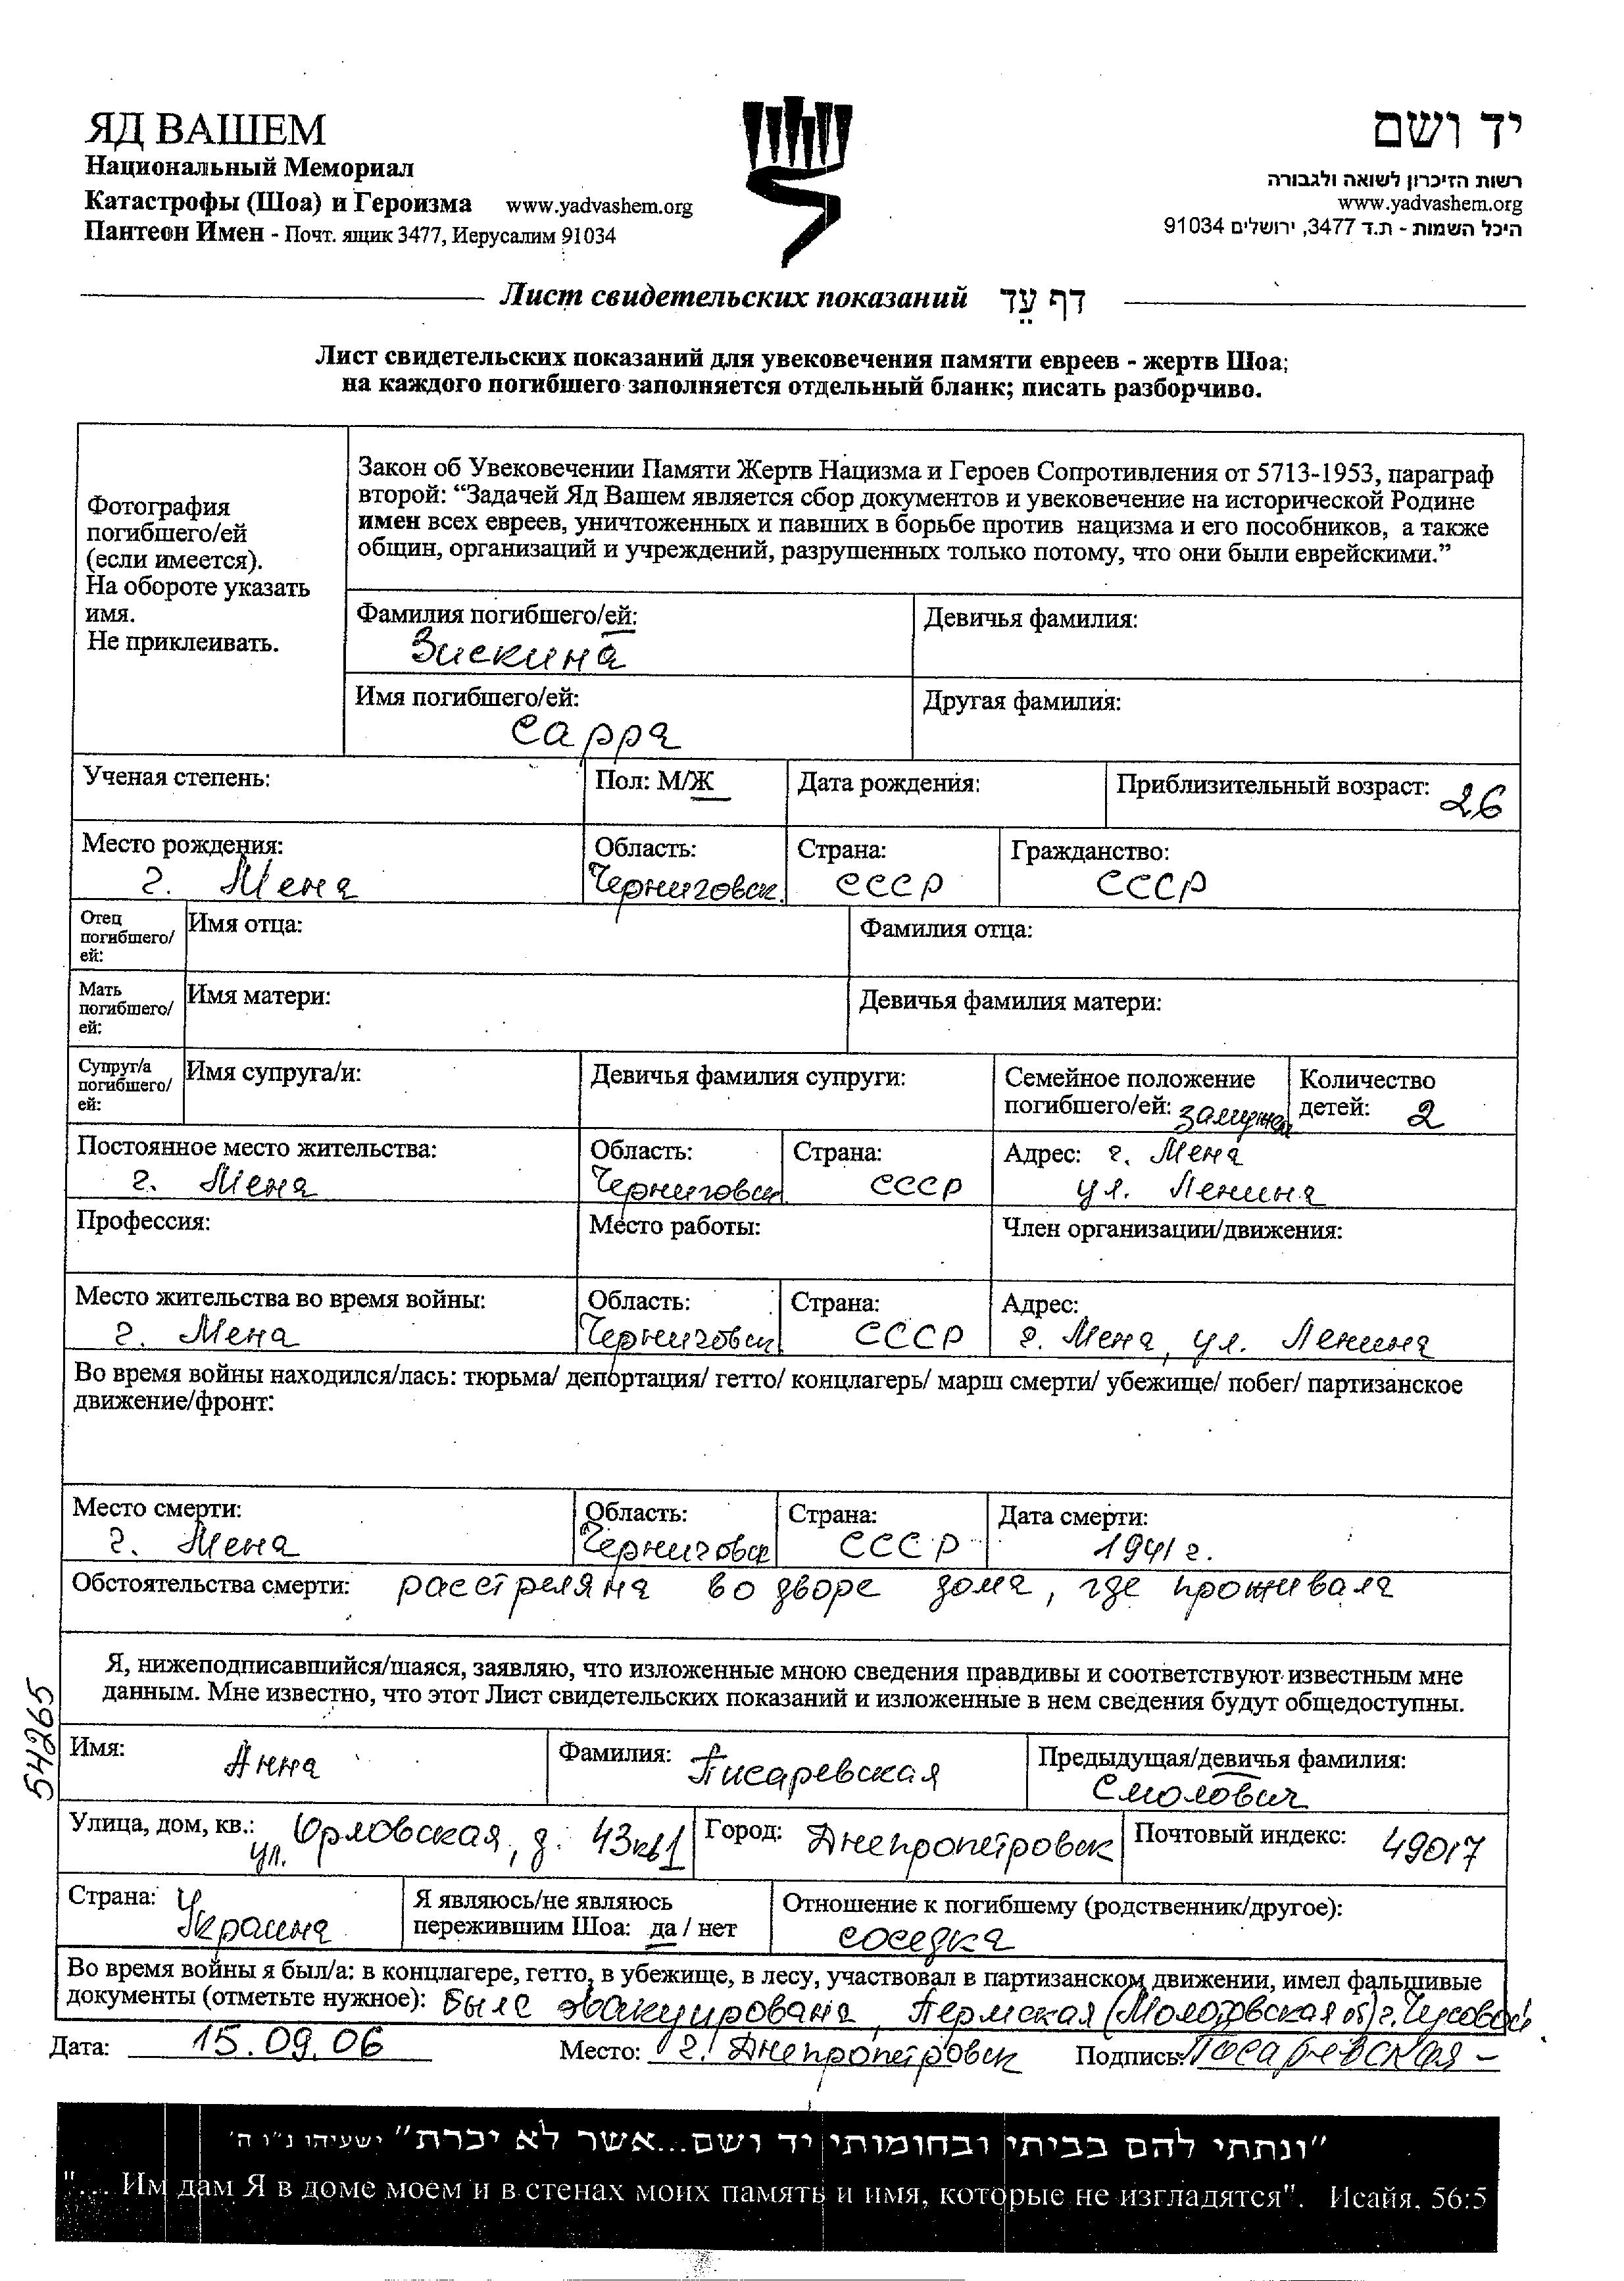 ЯД ВАШЕМ
Национальный Мемориал
Катастрофы (Шоа) и Героизма www.yadvashem.org
Пантеон Имен - Почт. ящик 3477, Иерусалим 91034
יד ושם
רשות הזיכרון לשואה ולגבורה
www.yadvashem.org
היכל השמות - ת.ד 3477, ירושלים 91034
Лист свидетельских показаний דף עֵד
Лист свидетельских показаний для увековечения памяти евреев - жертв Шоа;
на каждого погибшего заполняется отдельный бланк; писать разборчиво.
Фотография
погибшего/ей
(если имеется).
На обороте указать
имя.
Не приклеивать.
Закон об Увековечении Памяти Жертв Нацизма и Героев Сопротивления от 5713-1953, параграф
второй: “Задачей Яд Вашем является сбор документов и увековечение на исторической Родине
имен всех евреев, уничтоженных и павших в борьбе против нацизма и его пособников, а также
общин, организаций и учреждений, разрушенных только потому, что они были еврейскими.”
Фамилия погибшего/ей: Девичья фамилия:
Зискина
Имя погибшего/ей: Другая фамилия:
Сарра
Ученая степень: Пол: М/Ж Дата рождения: Приблизительный возраст: 26
Место рождения: Область: Страна: Гражданство:
г. Мена Черниговск. СССР СССР
Отец
погибшего/
ей:
Имя отца: Фамилия отца:
Мать
погибшего/
ей:
Имя матери: Девичья фамилия матери:
Супруг/а
погибшего/
ей:
Имя супруга/и: Девичья фамилия супруги:
Семейное положение
погибшего/ей: замужем
Количество
детей: 2
Постоянное место жительства: Область: Страна: Адрес: г. Мена
г. Мена Черниговск СССР ул. Ленина
Профессия: Место работы: Член организации/движения:
Место жительства во время войны: Область: Страна: Адрес:
г. Мена Черниговск СССР г. Мена, ул. Ленина
Во время войны находился/лась: тюрьма/ депортация/ гетто/ концлагерь/ марш смерти/ убежище/ побег/ партизанское
движение/фронт:
Место смерти: Область: Страна: Дата смерти:
г. Мена Черниговск СССР 1941 г.
Обстоятельства смерти: расстреляна во дворе дома, где проживала
Я, нижеподписавшийся/шаяся, заявляю, что изложенные мною сведения правдивы и соответствуют известным мне
данным. Мне известно, что этот Лист свидетельских показаний и изложенные в нем сведения будут общедоступны.
54265
Имя: Анна Фамилия: Писаревская Предыдущая/девичья фамилия:
Смолович
Улица, дом, кв.: ул. Орловская, д. 43 кв1 Город: Днепропетровск Почтовый индекс: 49017
Страна: Украина
Я являюсь/не являюсь
пережившим Шоа: да / нет
Отношение к погибшему (родственник/другое):
соседка
Во время войны я был/а: в концлагере, гетто, в убежище, в лесу, участвовал в партизанском движении, имел фальшивые
документы (отметьте нужное): Была эвакуирована, Пермская (Молотовская об) г. Чусовой
Дата: 15.09.06 Место: г. Днепропетровск Подпись: Писаревская
"ונתתי להם בביתי ובחומותי יד ושם...אשר לא יכרת" ישעיהו נ"ו ה'
"... Им дам Я в доме моем и в стенах моих память и имя, которые не изгладятся". Исайя, 56:5